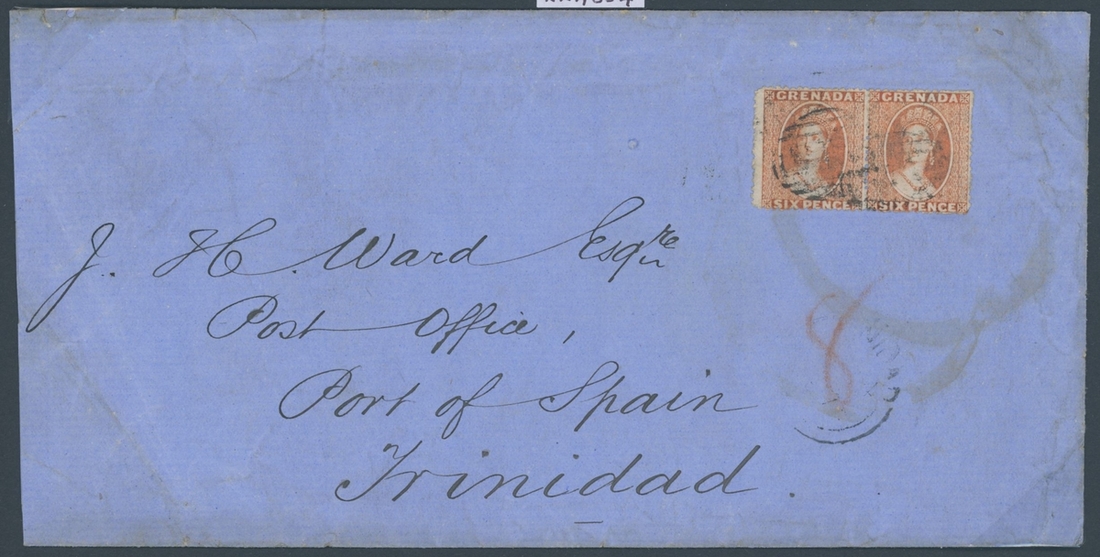 GRENADA GRENADA
SIX PENCE SIX PENCE
J. H. Ward Esqre
Post Office,
Port of Spain
Trinidad.
8